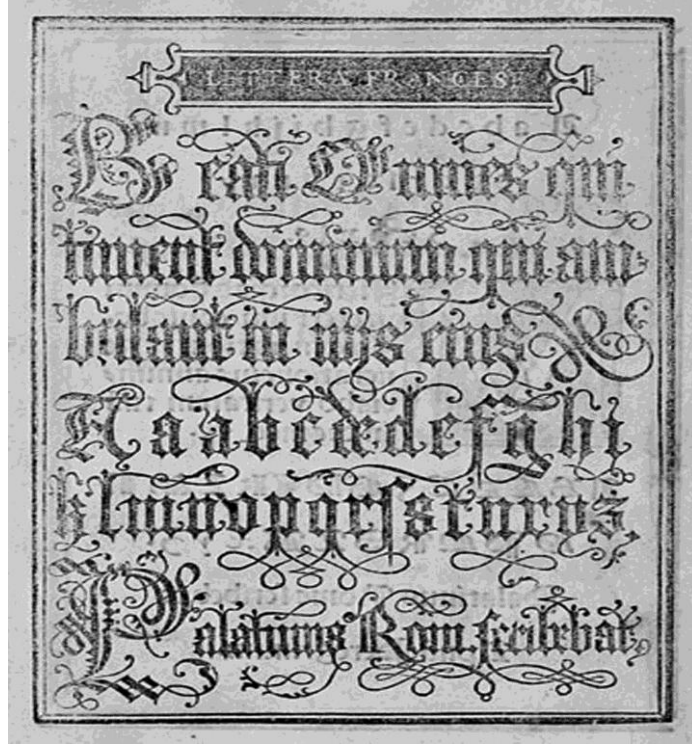 LETTERA FRANCESE
Beati Omnes qui
timent dominum qui am
bulant in uijs eius
A a a b c d e d e f g h i
k l m n o p q r ſ s t u x y z
Palatinus Rom. ſcribebat